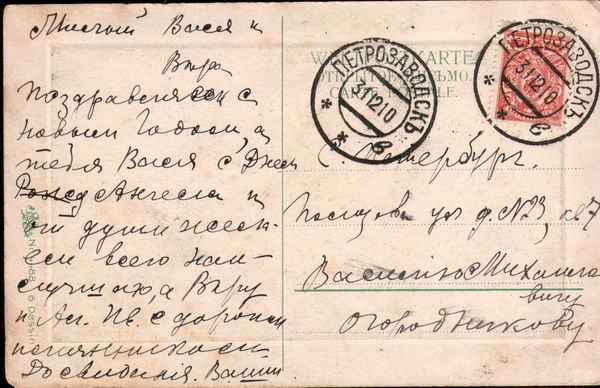 Милый Вася и
Вера
поздравляем с
новым Годом, а
тебя Вася с Днем
Рожд Ангела и
от души жела-
ем всего наи-
лучшаго, а Веру
и Ал. Ив. с дорогим
именинником
До свидания. Ваши
WELTPOSTKARTE
ОТКРЫТОЕ ПИСЬМО.
ПЕТРОЗАВОДСКЪ
31 12 10
в
ПЕТРОЗАВОДСКЪ
31 12 10
в
С. Петербург.
ул д. N23, кв 7
Василию Михайло
вичу
Огородникову